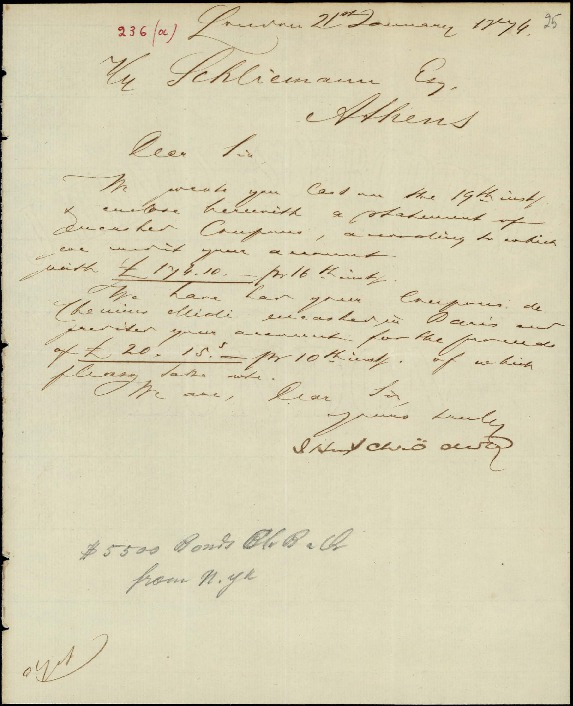 236 (a)
25
London 21st January 1874.
Hy Schliemann Esq.
Athens
Dear Sir
We wrote you last on the 19th inst.
& enclose herewith a statement of
encashed Coupons, according to which
we credit your account
with £ 174.10.— pr 16th inst.
We have had your Coupons de
Chemins Midi encashed in Paris and
credited your account for the proceeds
of £ 20. 15.s — pr 10th inst. of which
please take note.
We are, Dear Sir,
yours truly
J Hy Schröder & Co
$5500 Bonds
from N.Yk